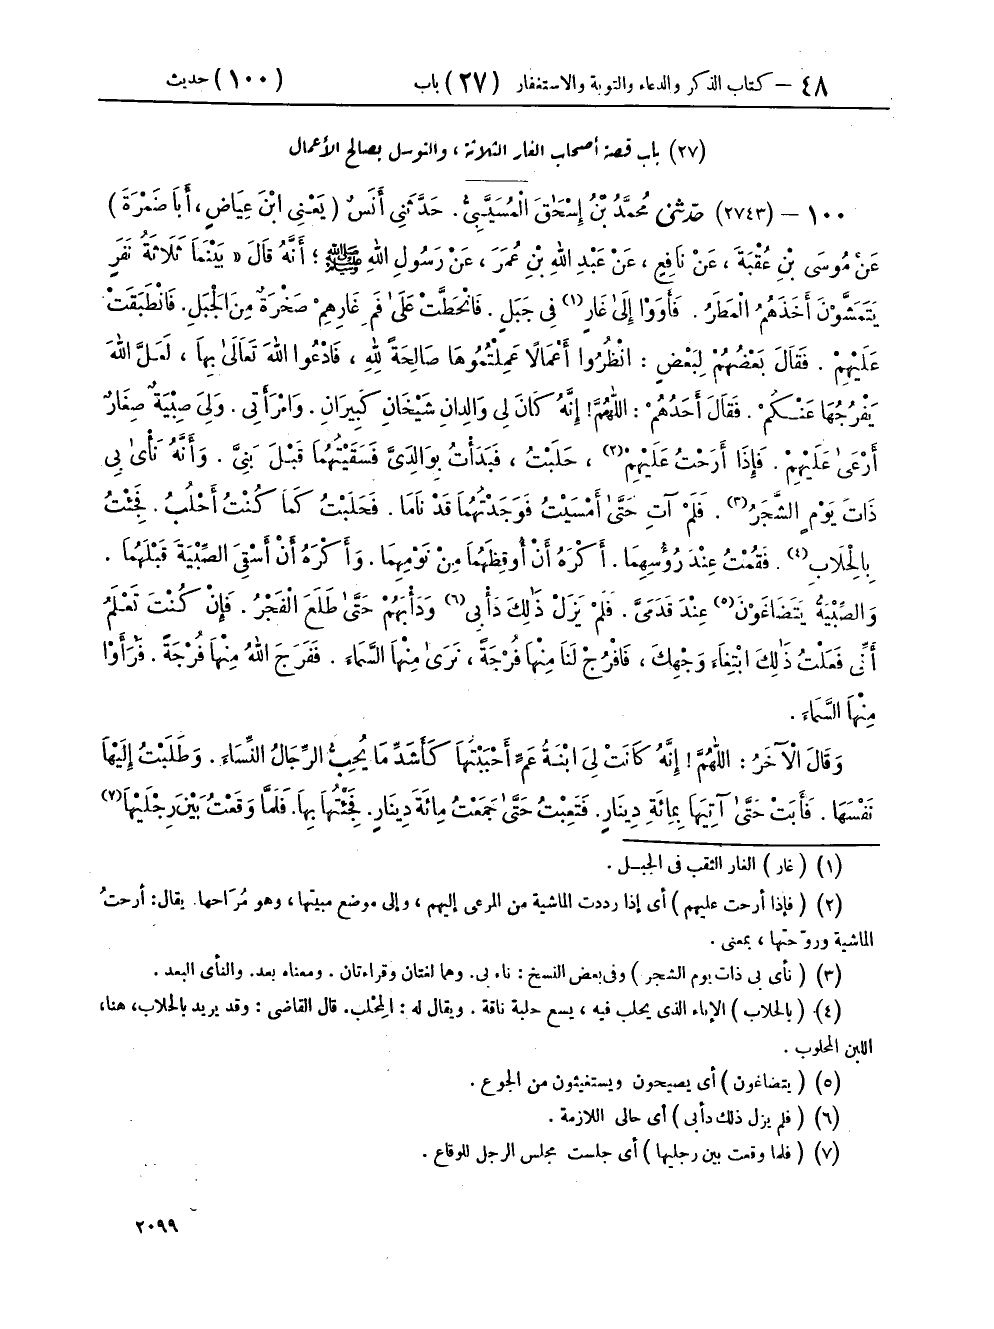 ٤٨ – كتاب الذكر والدعاء والتوبة والاستغفار (٢٧) باب (١٠٠) حديث
(٢٧) باب قصة أصحاب الغار الثلاثة، والتوسل بصالح الأعمال
١٠٠ – (٢٧٤٣) حَدَّثَنِي مُحَمَّدُ بْنُ إِسْحَقَ الْمُسَيَّبِيُّ. حَدَّثَنِي أَنَسٌ (يَعْنِي ابْنَ عِيَاضٍ، أَبَا ضَمْرَةَ)
عَنْ مُوسَى بْنِ عُقْبَةَ، عَنْ نَافِعٍ، عَنْ عَبْدِ اللهِ بْنِ عُمَرَ، عَنْ رَسُولِ اللهِ ﷺ؛ أَنَّهُ قَالَ «بَيْنَمَا ثَلَاثَةُ نَفَرٍ
يَتَمَشَّوْنَ أَخَذَهُمُ الْمَطَرُ. فَأَوَوْا إِلَىٰ غَارٍ(١) فِي جَبَلٍ. فَانْحَطَّتْ عَلَىٰ فَمِ غَارِهِمْ صَخْرَةٌ مِنَ الْجَبَلِ. فَانْطَبَقَتْ
عَلَيْهِمْ. فَقَالَ بَعْضُهُمْ لِبَعْضٍ: انْظُرُوا أَعْمَالًا عَمِلْتُمُوهَا صَالِحَةً لِلهِ، فَادْعُوا اللهَ تَعَالَىٰ بِهَا، لَعَلَّ اللهَ
يَفْرُجُهَا عَنْكُمْ. فَقَالَ أَحَدُهُمْ: اللَّهُمَّ! إِنَّهُ كَانَ لِي وَالِدَانِ شَيْخَانِ كَبِيرَانِ. وَامْرَأَتِي. وَلِيَ صِبْيَةٌ صِغَارٌ
أَرْعَىٰ عَلَيْهِمْ. فَإِذَا أَرَحْتُ عَلَيْهِمْ(٢)، حَلَبْتُ، فَبَدَأْتُ بِوَالِدَيَّ فَسَقَيْتُهُمَا قَبْلَ بَنِيَّ. وَأَنَّهُ نَأَىٰ بِي
ذَاتَ يَوْمٍ الشَّجَرُ(٣). فَلَمْ آتِ حَتَّىٰ أَمْسَيْتُ فَوَجَدْتُهُمَا قَدْ نَامَا. فَحَلَبْتُ كَمَا كُنْتُ أَحْلُبُ. فَجِئْتُ
بِالْحِلَابِ(٤). فَقُمْتُ عِنْدَ رُؤُسِهِمَا. أَكْرَهُ أَنْ أُوقِظَهُمَا مِنْ نَوْمِهِمَا. وَأَكْرَهُ أَنْ أَسْقِيَ الصِّبْيَةَ قَبْلَهُمَا.
وَالصِّبْيَةُ يَتَضَاغَوْنَ(٥) عِنْدَ قَدَمَيَّ. فَلَمْ يَزَلْ ذَٰلِكَ دَأْبِي(٦) وَدَأْبَهُمْ حَتَّىٰ طَلَعَ الْفَجْرُ. فَإِنْ كُنْتَ تَعْلَمُ
أَنِّي فَعَلْتُ ذَٰلِكَ ابْتِغَاءَ وَجْهِكَ، فَافْرُجْ لَنَا مِنْهَا فُرْجَةً، نَرَىٰ مِنْهَا السَّمَاءَ. فَفَرَجَ اللهُ مِنْهَا فُرْجَةً. فَرَأَوْا
مِنْهَا السَّمَاءَ.
وَقَالَ الْآخَرُ: اللَّهُمَّ! إِنَّهُ كَانَتْ لِيَ ابْنَةُ عَمٍّ أَحْبَبْتُهَا كَأَشَدِّ مَا يُحِبُّ الرِّجَالُ النِّسَاءَ. وَطَلَبْتُ إِلَيْهَا
نَفْسَهَا. فَأَبَتْ حَتَّىٰ آتِيَهَا بِمِائَةِ دِينَارٍ. فَتَعِبْتُ حَتَّىٰ جَمَعْتُ مِائَةَ دِينَارٍ. فَجِئْتُهَا بِهَا. فَلَمَّا وَقَعْتُ بَيْنَ رِجْلَيْهَا(٧)
(١) (غار) الغار الثقب فى الجبل.
(٢) (فإذا أرحت عليهم) أى إذا رددت الماشية من المرعى إليهم، وإلى موضع مبيتها، وهو مُرَاحها. يقال: أرحتُ
الماشية وروّحتها، بمعنى.
(٣) (نأى بى ذات يوم الشجر) وفى بعض النسخ: ناء بى. وهما لغتان وقراءتان. ومعناه بعد. والنأى البعد.
(٤) (بالحلاب) الإناء الذى يحلب فيه، يسع حلبة ناقة. ويقال له: المِحْلب. قال القاضى: وقد يريد بالحلاب، هنا،
اللبن المحلوب.
(٥) (يتضاغون) أى يصيحون ويستغيثون من الجوع.
(٦) (فلم يزل ذلك دأبى) أى حالى اللازمة.
(٧) (فلما وقعت بين رجليها) أى جلست مجلس الرجل للوقاع.
٢٠٩٩